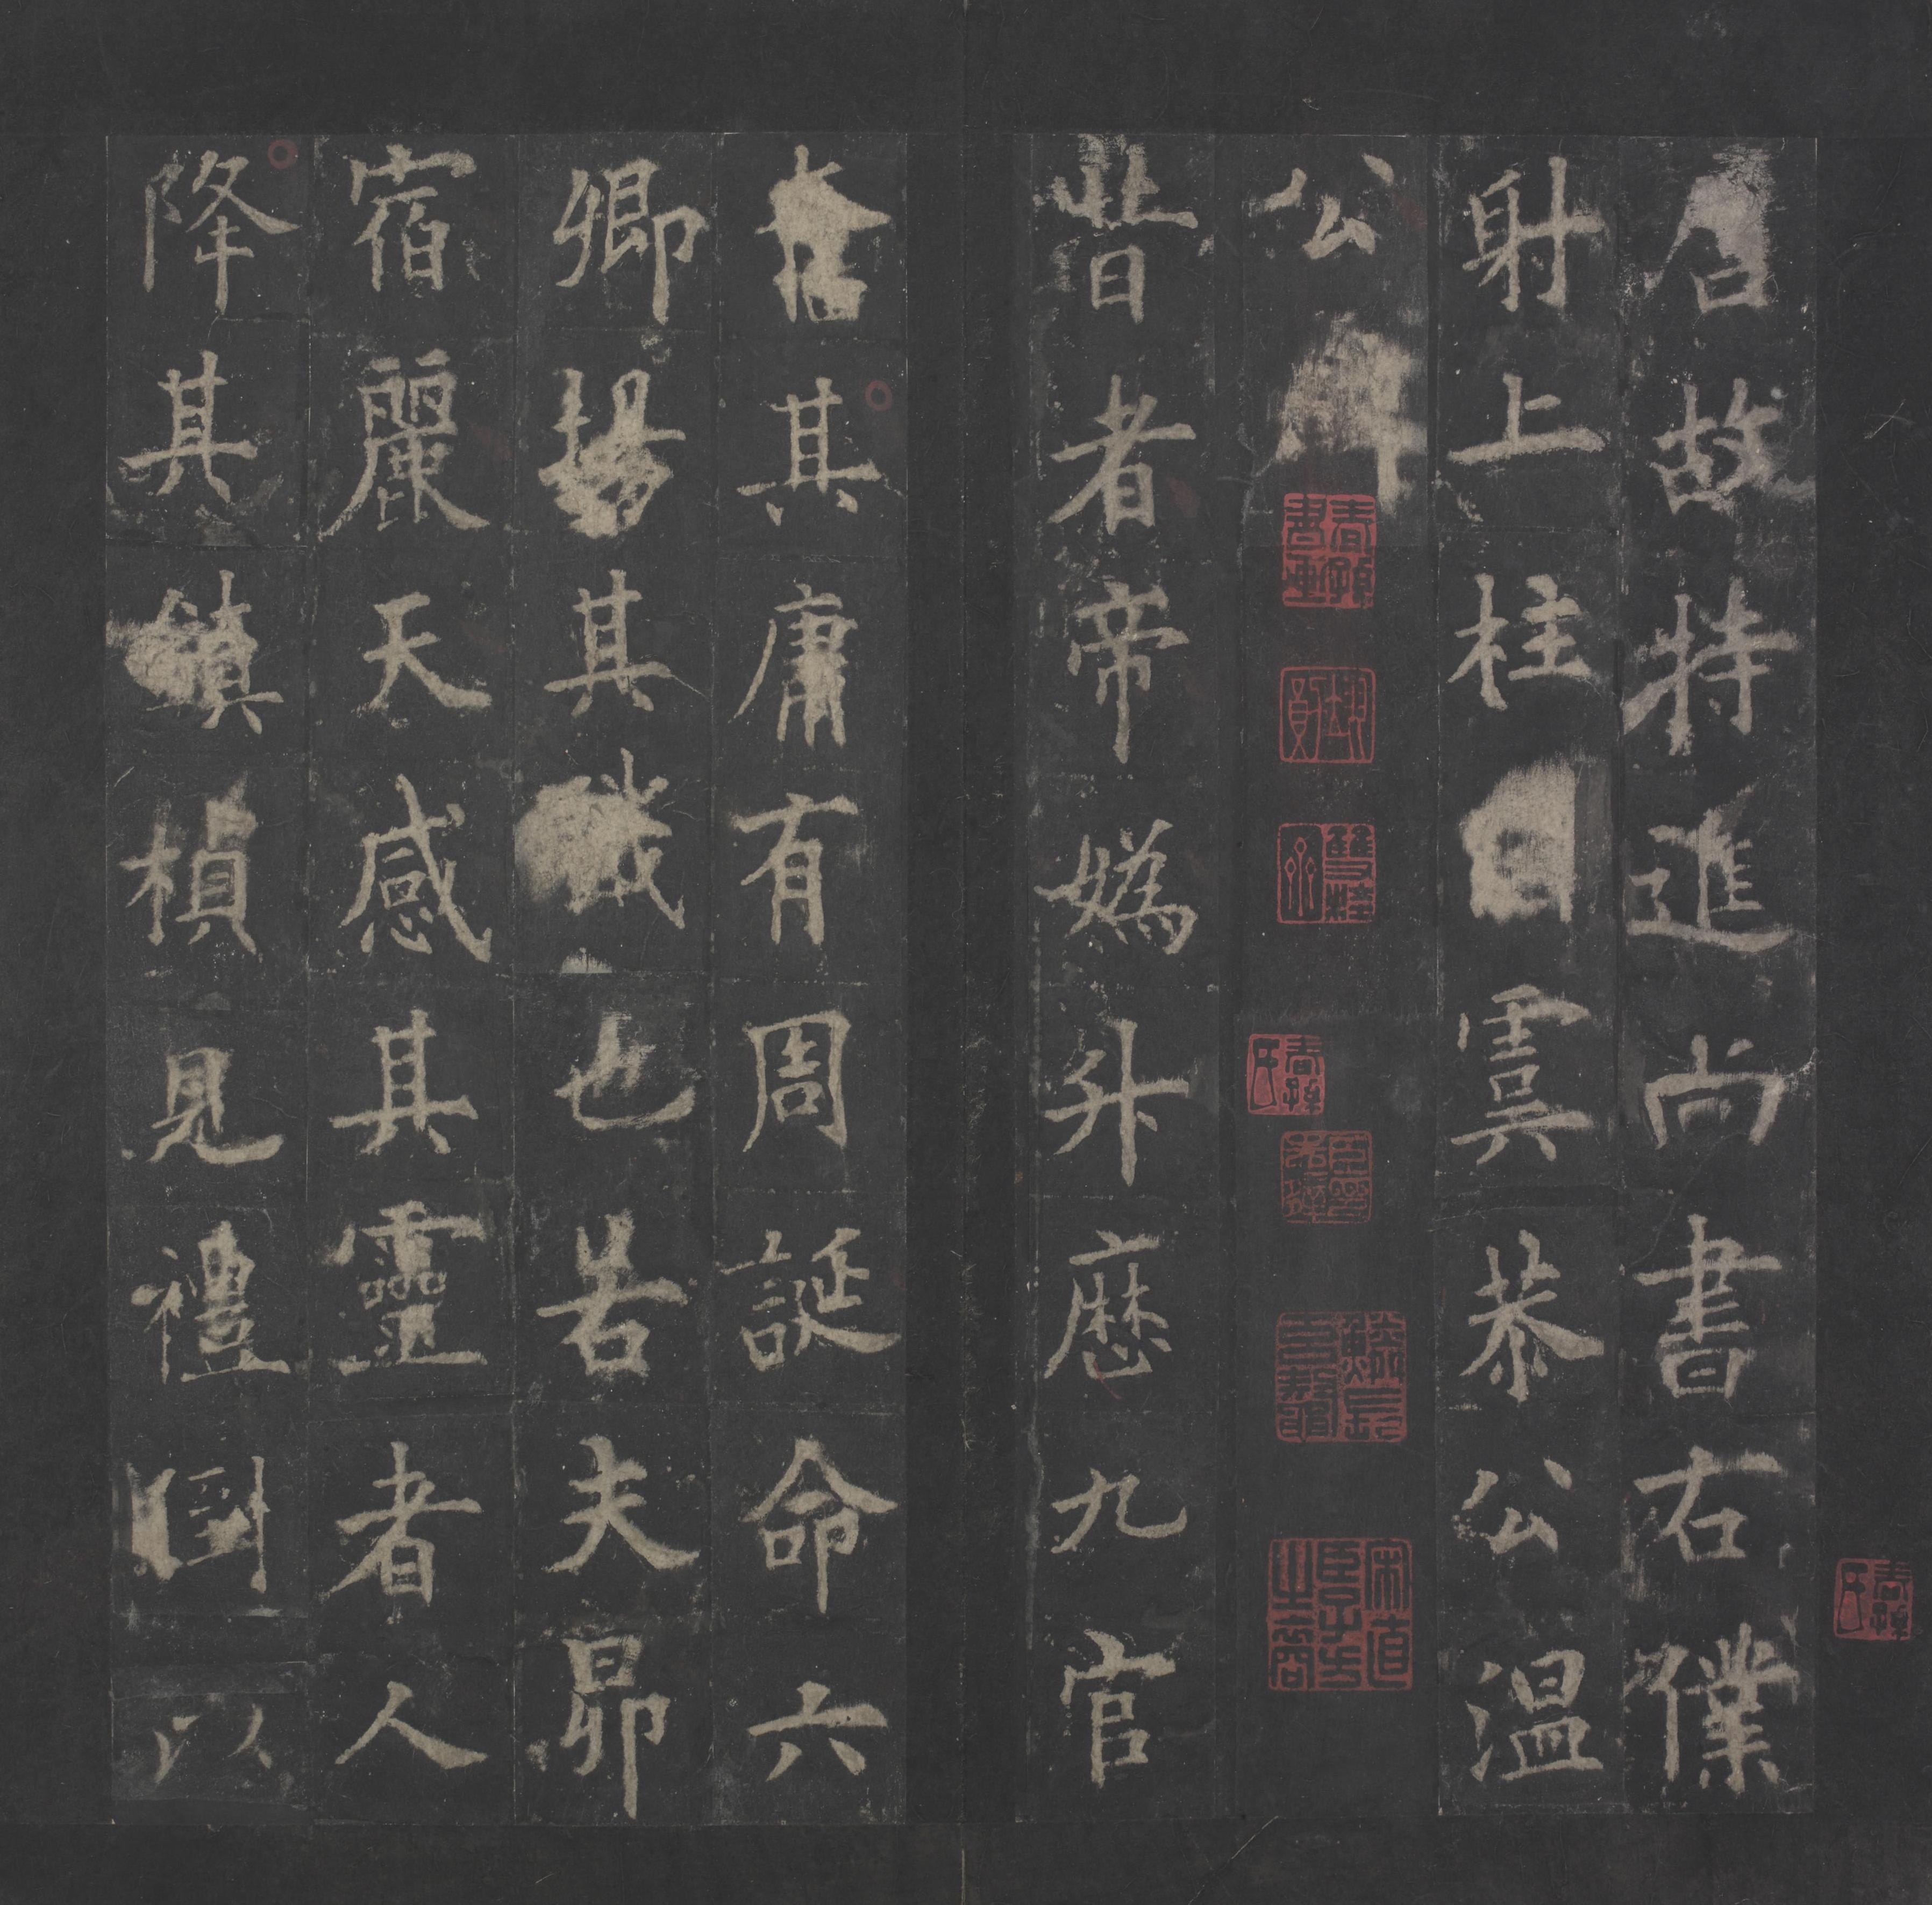 唐故特進尚書右僕
射上柱國虞恭公溫
公碑
昔者帝媯升歷九官
其庸有周誕命六
卿揚其職也若夫昴
宿麗天感其靈者人
降其鎮楨見禮以